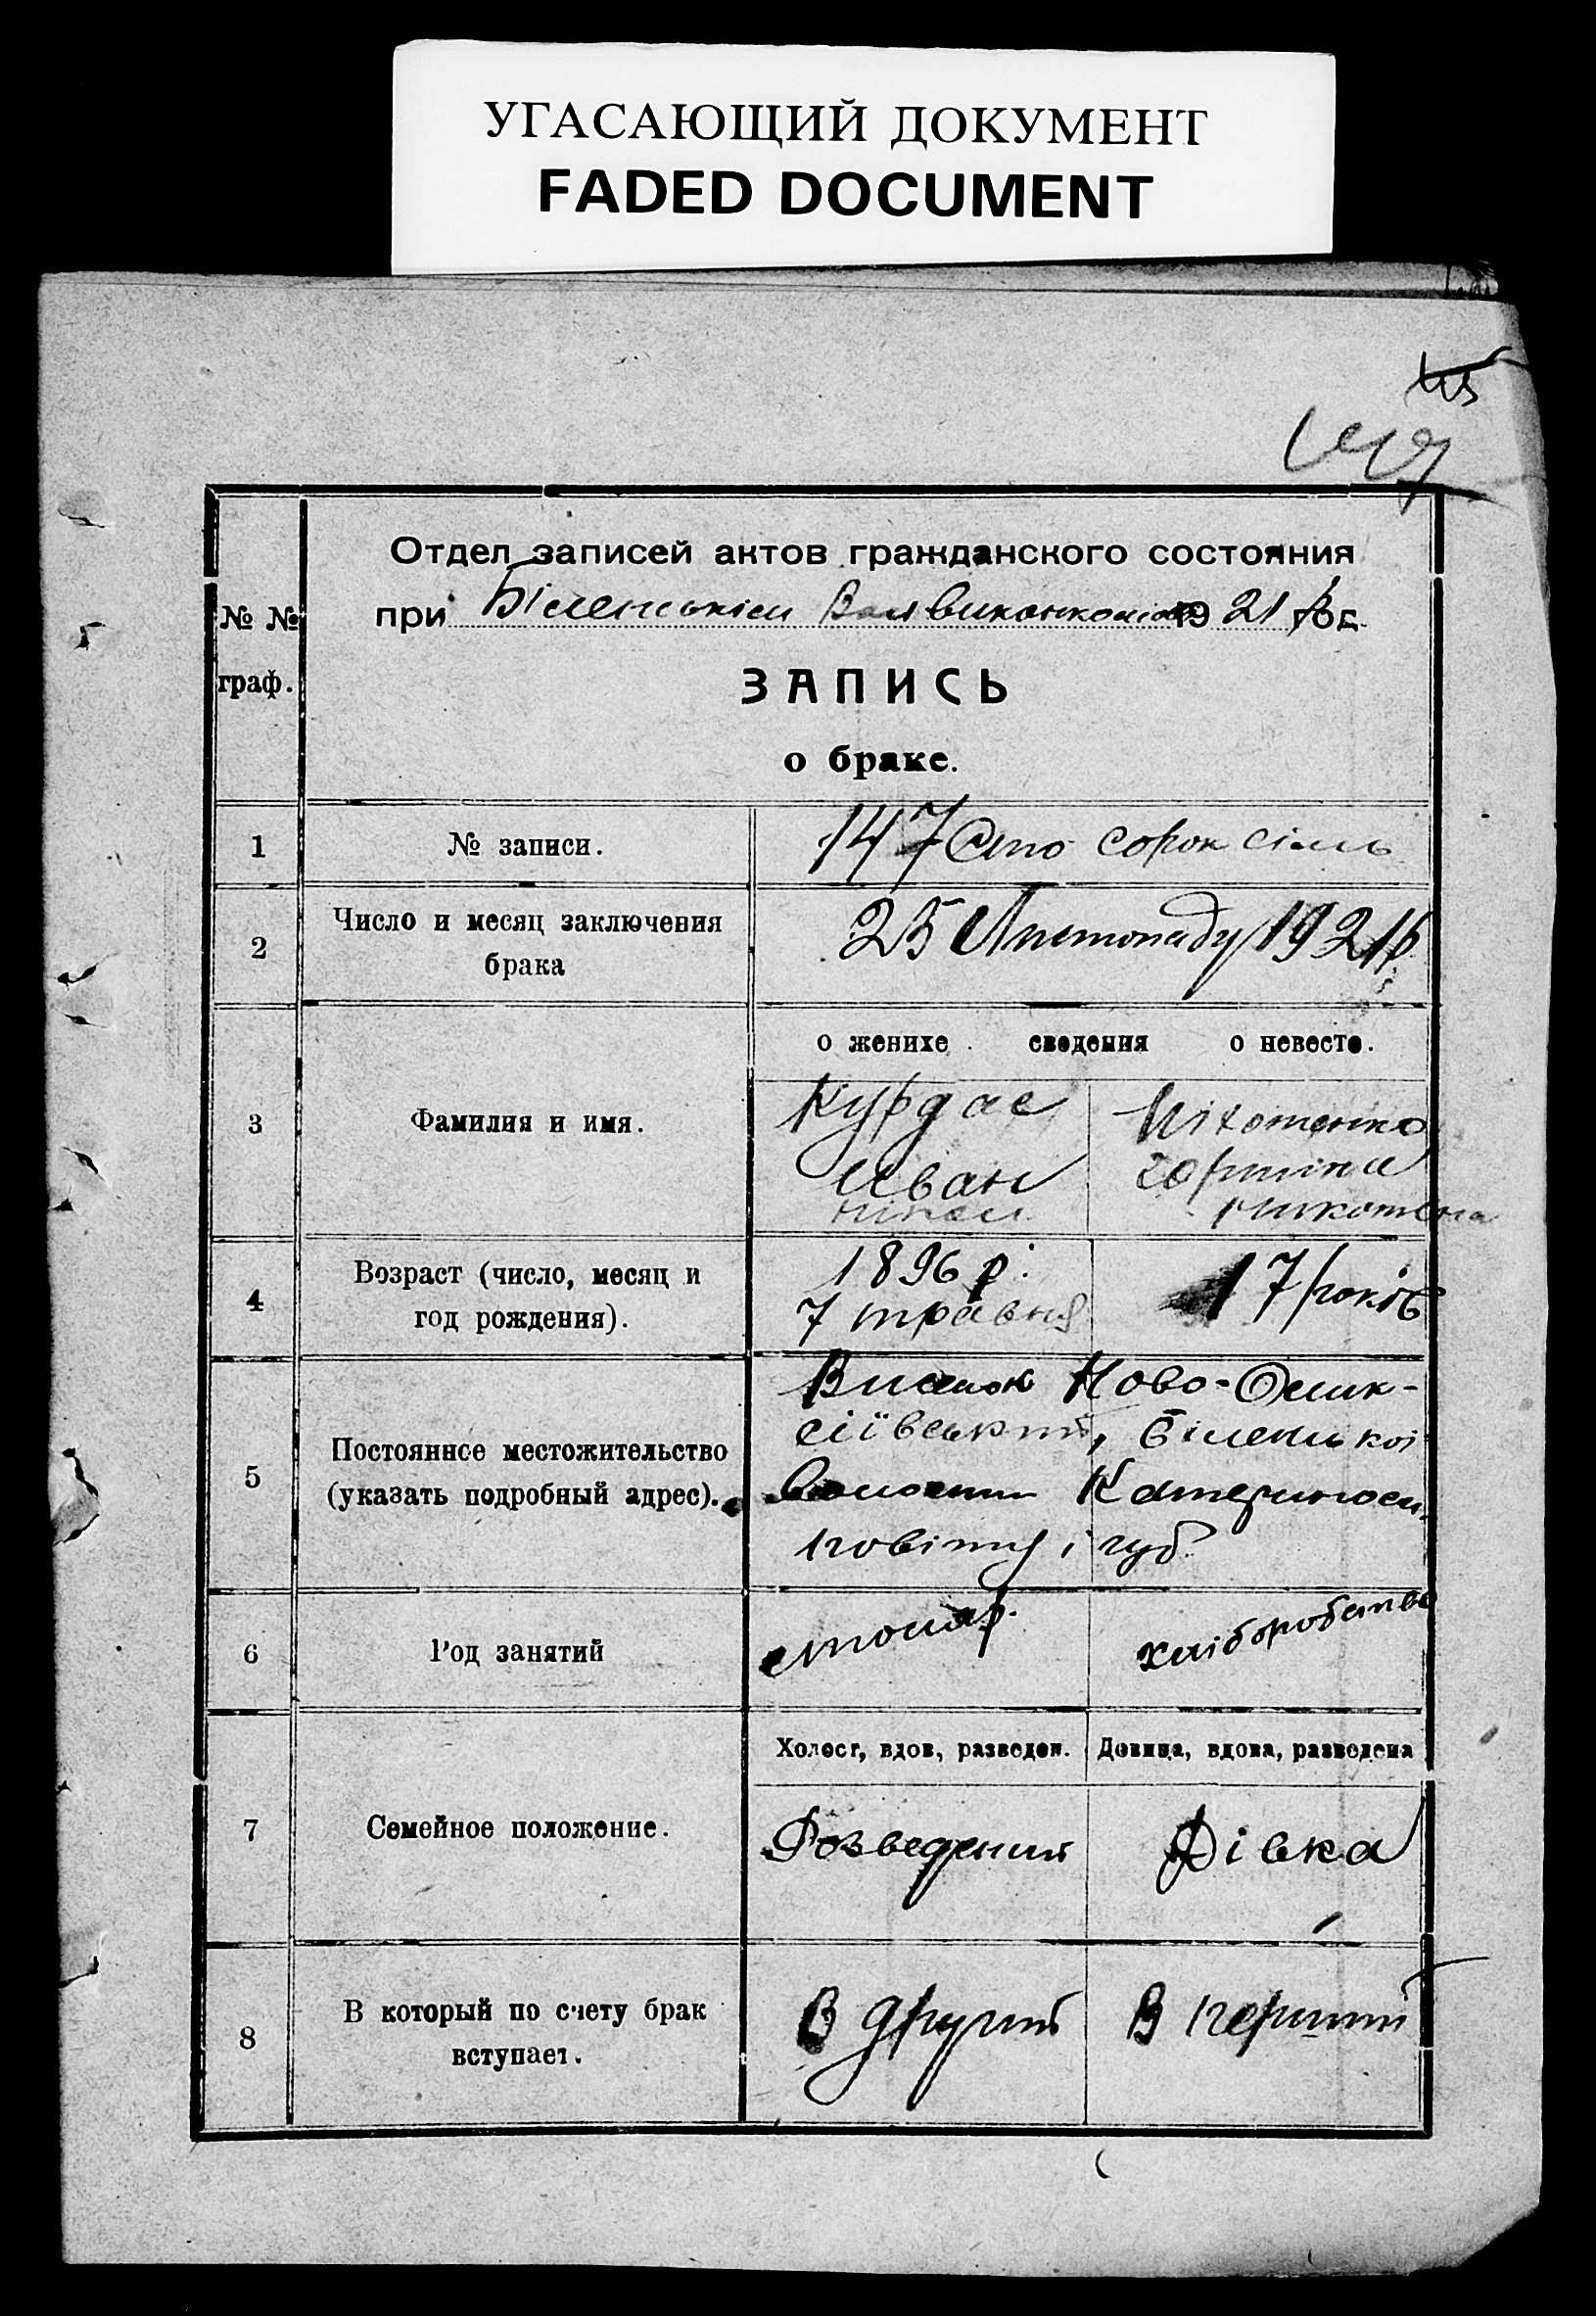 УГАСАЮЩИЙ ДОКУМЕНТ
FADED DOCUMENT
147
№ №
граф.
Отдел записей актов гражданского состояния
при Біленькім Вол виконкомі 1921 р. г.
ЗАПИСЬ
о браке.
1 № записи. 147 Сто сорок сім
2 Число и месяц заключения
брака
25 Листопаду 1921 р.
о женихе сведения о невесте.
3 Фамилия и имя.
Курдас
Иван
Горпина
4 Возраст (число, месяц и
год рождения).
1896 р.
7 травня
17 років
5 Постоянное местожительство
(указать подробный адрес).
Виселок Ново-Олик-
сіївський, Біленькоі
Волости Катериносл.
повіту і губ.
6 Род занятий
столяр.
хліборобство
Холост, вдов, разведен. Девица, вдова, разведена
7 Семейное положение.
Розведений Дівка
8 В который по счету брак
вступает.
В другий В перший